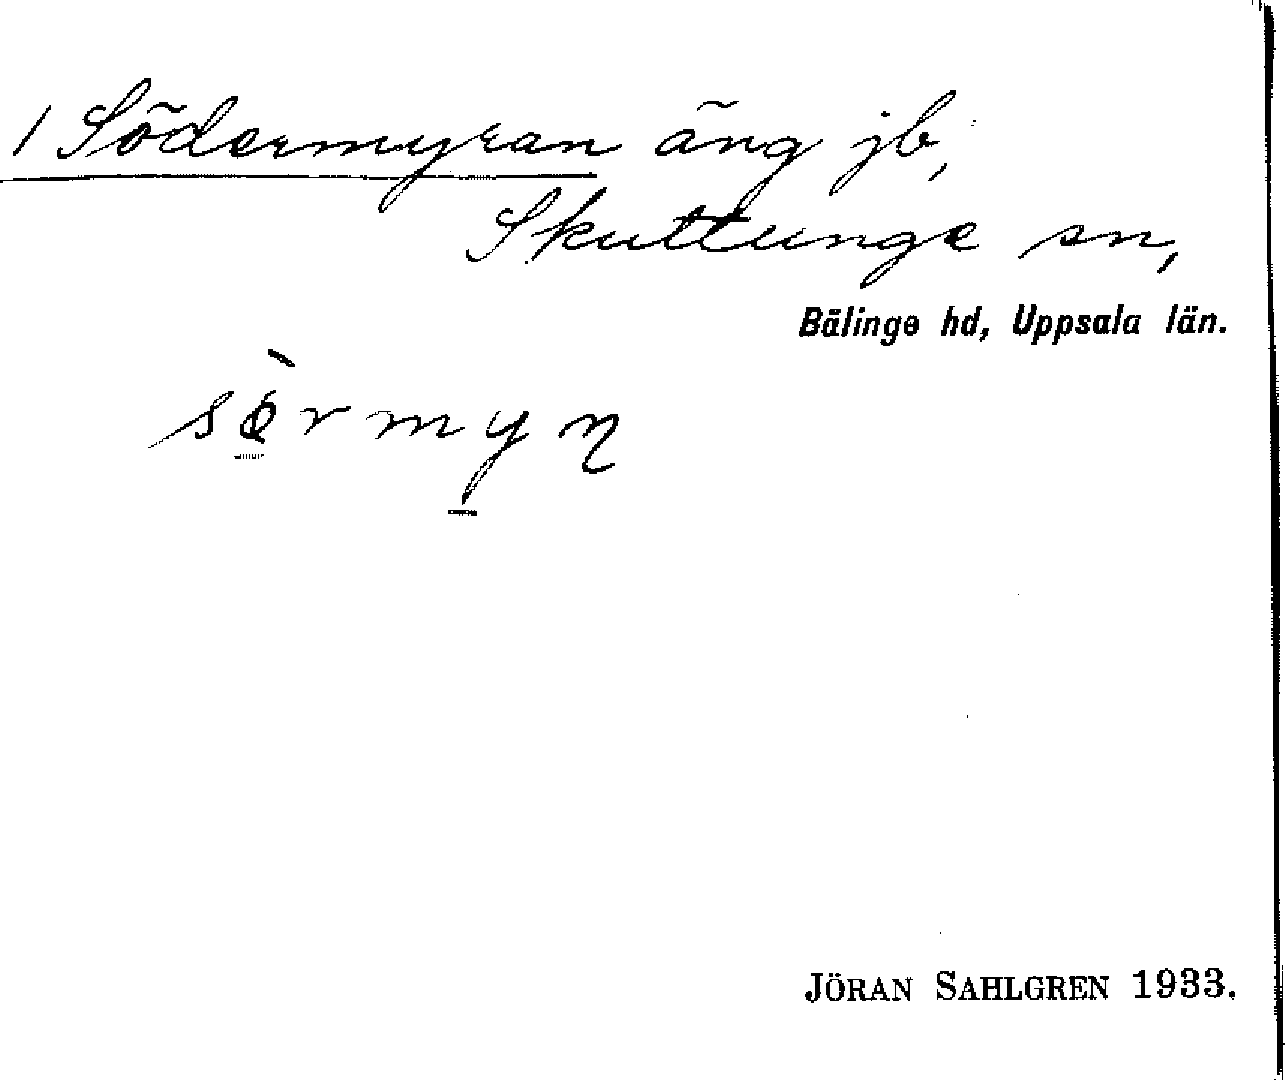 / Södermyran äng jb,
Skuttunge sn,
Bälinge hd, Uppsala län.
sὸrmyɳ
JÖRAN SAHLGREN 1933.